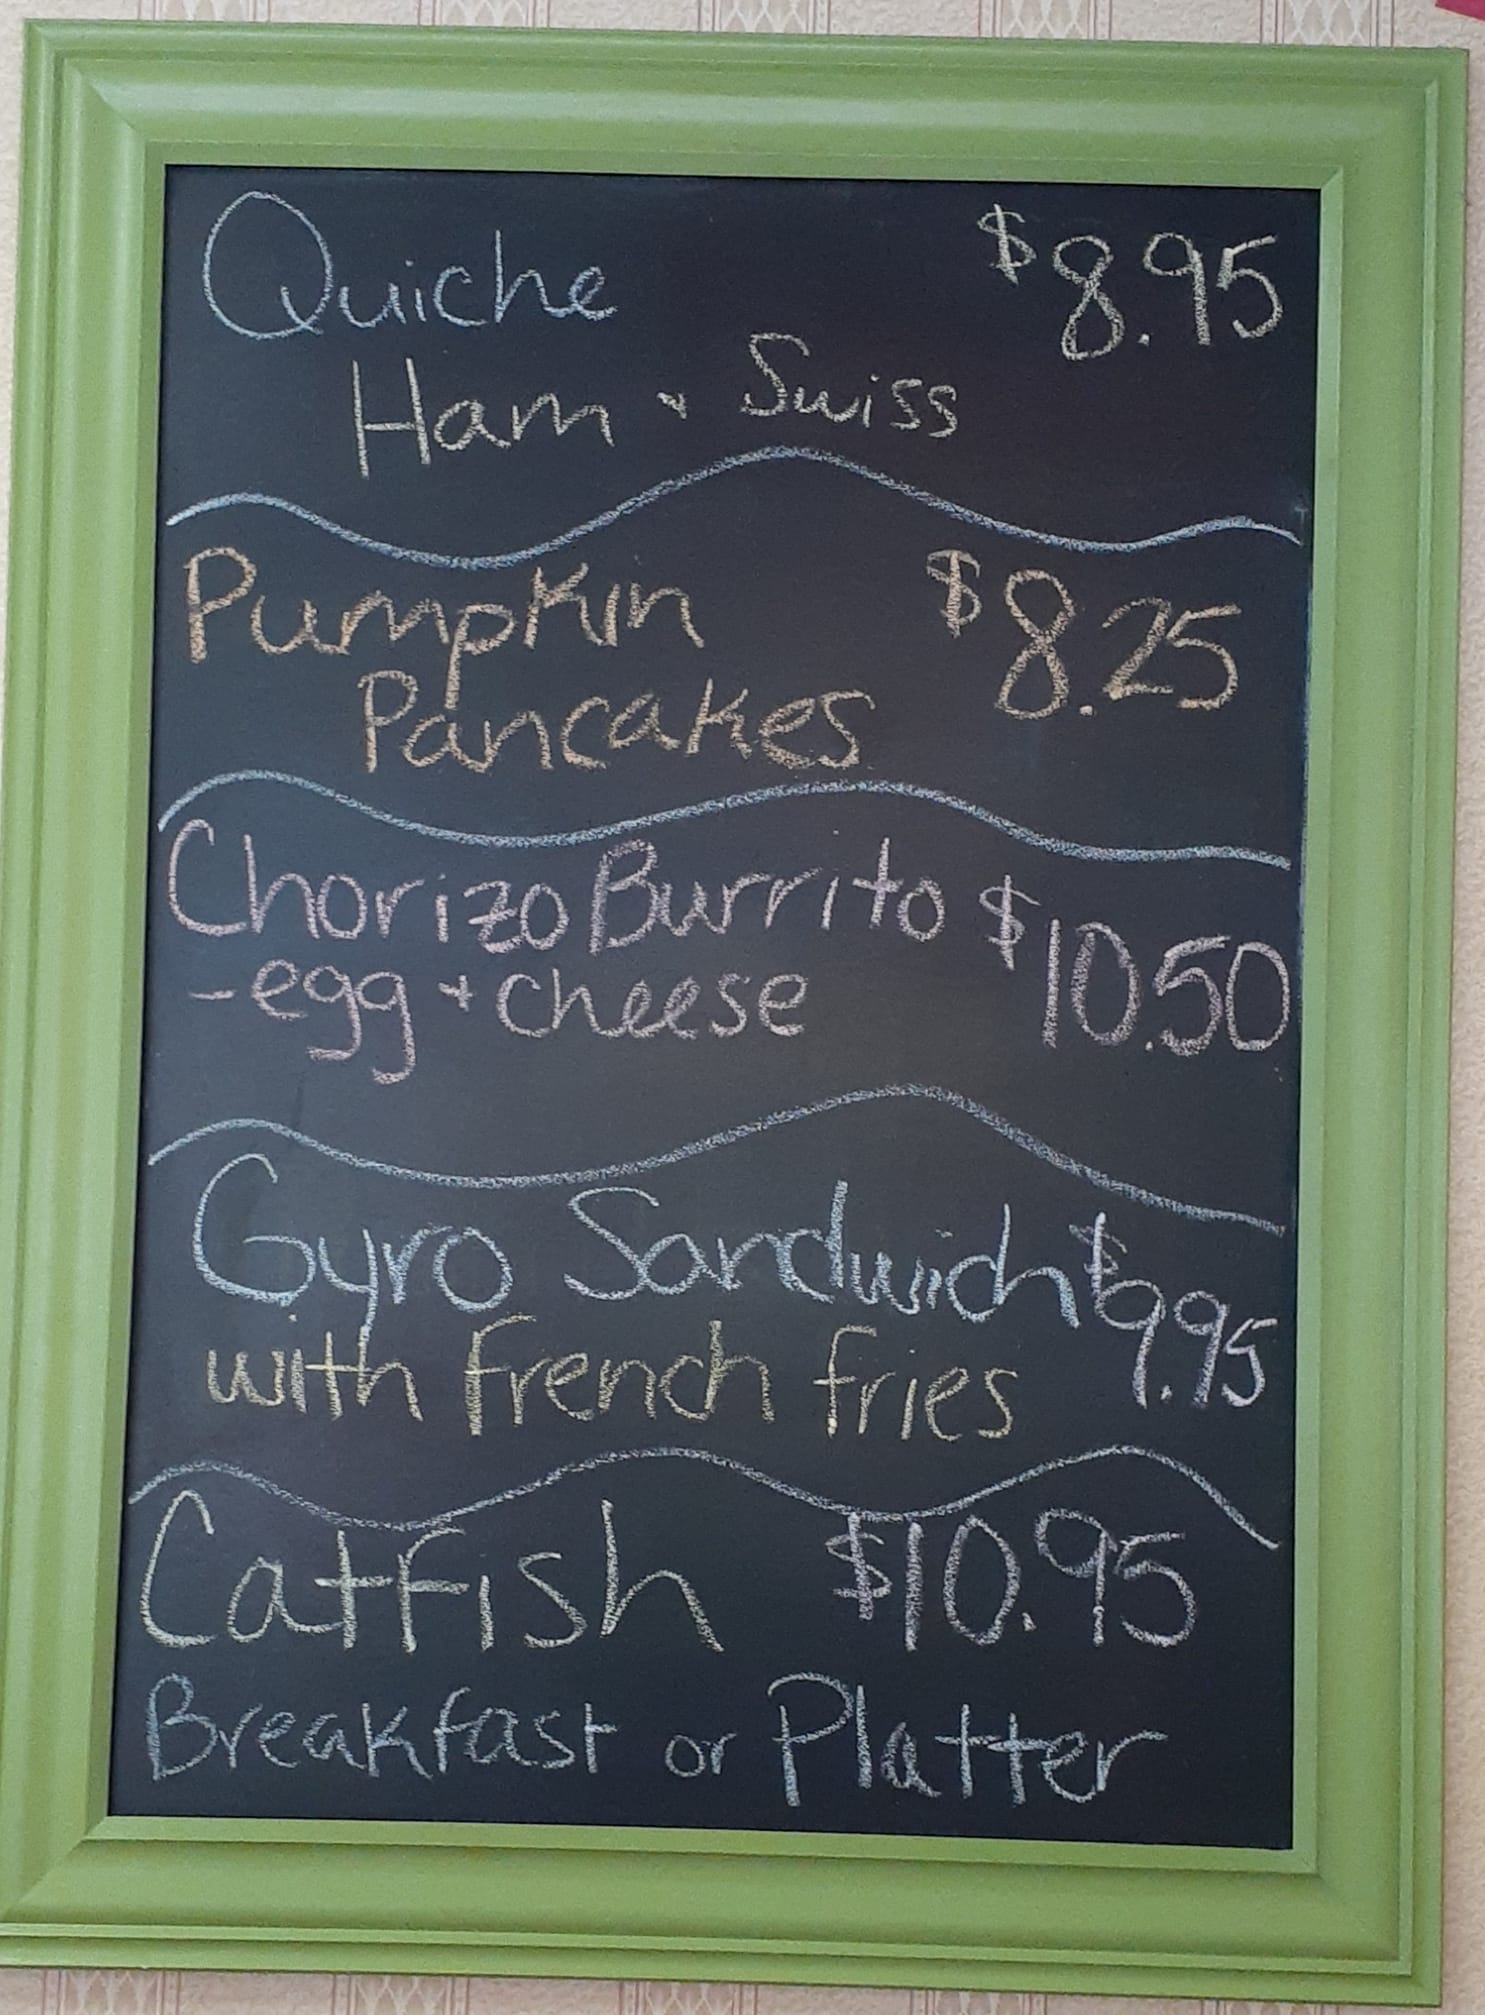 Quiche $8.95
Ham + Swiss
Pumpkin $8.25
Pancakes
Chorizo Burrito $10.50
- egg + cheese
Gyro Sandwich $9.95
with french fries
Catfish $10.95
Breakfast or Platter